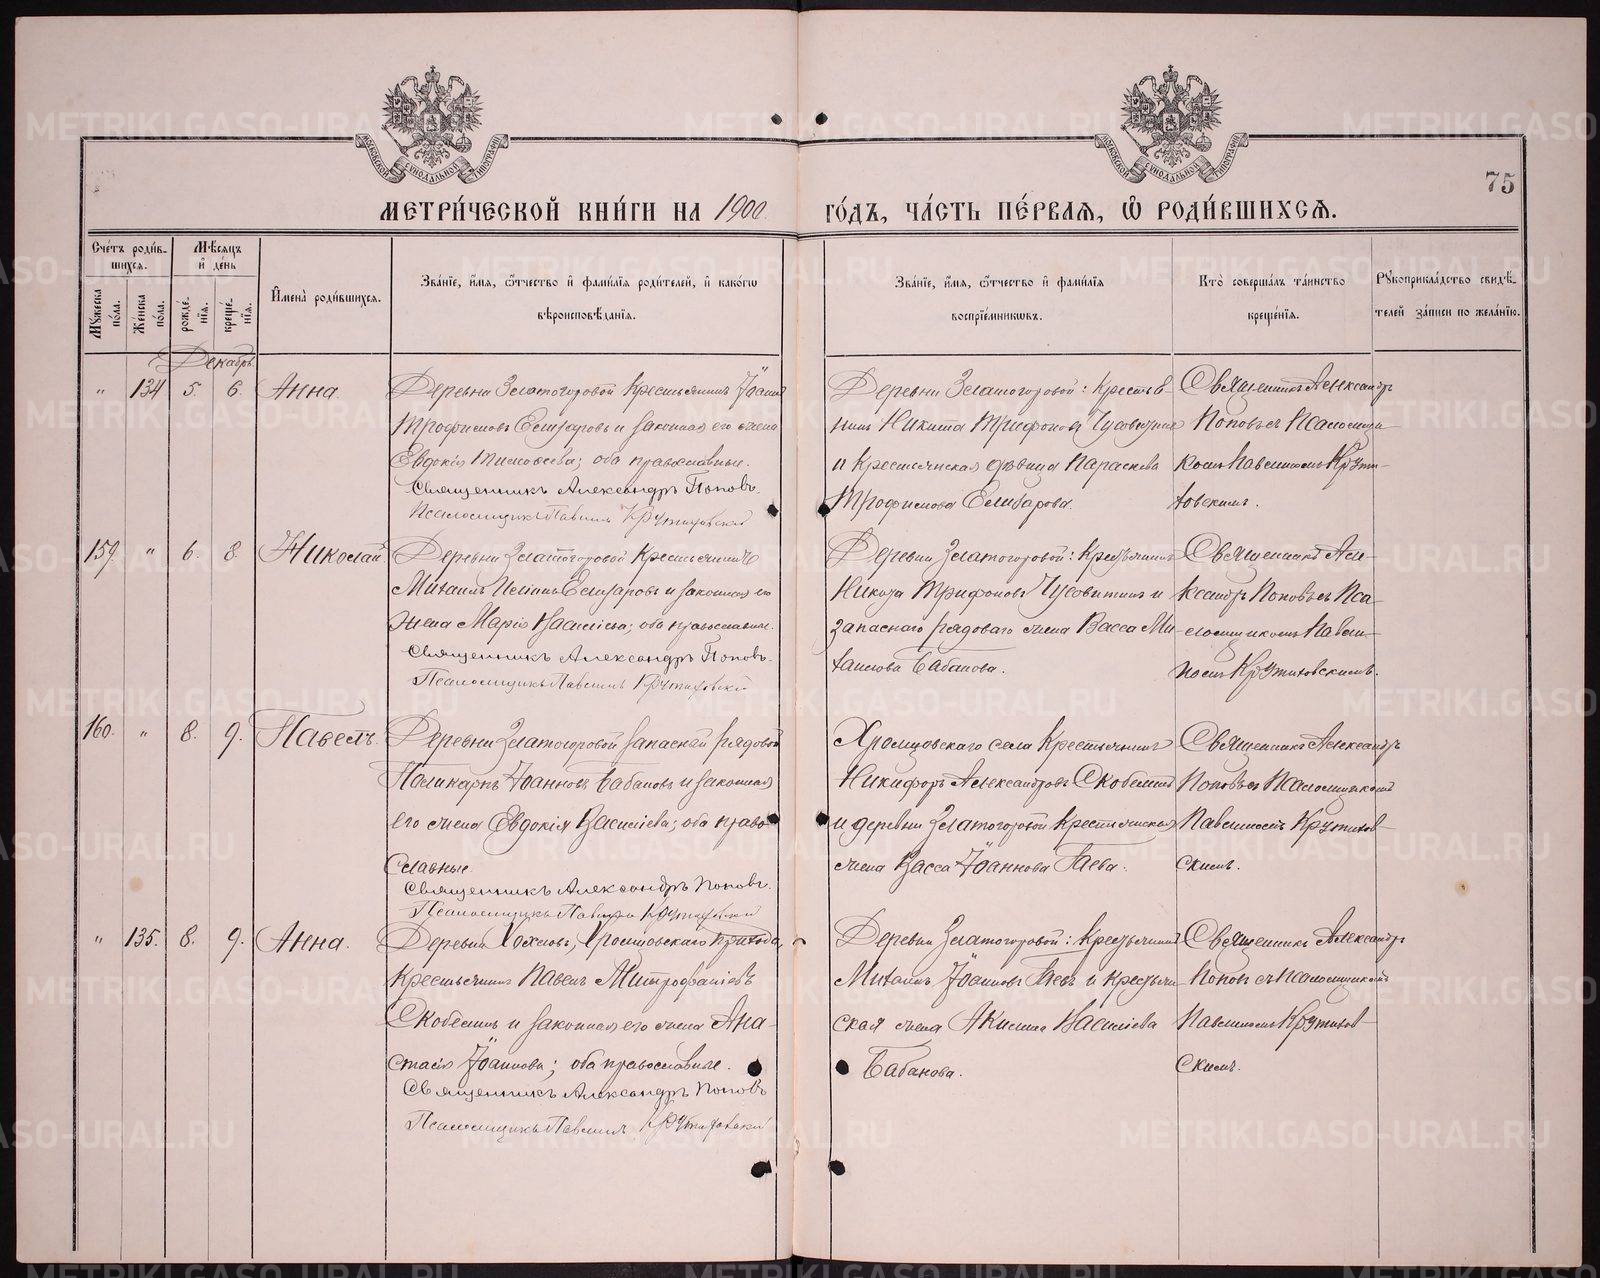 75
МЕТРИ́ЧЕСКОЙ КНИ́ГИ НА 1900 ГО́ДЪ, ЧА́СТЬ ПЕ́РВАЯ, Ѡ РОДИ́ВШИХСЯ.
Сче́тъ роди́в-
шихся.
Мѣ́сяцъ
и де́нь
Му́жеска по́ла.
Же́нска по́ла.
рожде́-
нія.
креще́-
нія.
И́мена роди́вшихся.
Зва́ніе, и́мя, ѻ́тчество и фами́лія роди́телей, и како́гѡ
вѣроисповѣ́данія.
Зва́ніе, и́мя, ѻ́тчество и фами́лія
воспріе́мникѡвъ.
Кто̀ соверша́лъ та́инство
креще́нія.
Рꙋкоприкла́дство свидѣ́-
телей за́писи по жела́нію.
Декабрь
" 134 5. 6. Анна.
Деревни Златогоровой Крестьянинъ Іоаннъ
Трофимовъ Елизаровъ и законная его жена
Евдокія Тимоѳеева; оба православные.
Священникъ Александръ Поповъ.
Псаломщикъ Павлинъ Крутиховскій
Деревни Златогоровой: крестья-
нинъ Никита Трифоновъ Чусовитинъ
и Крестьянская дѣвица Параскева
Трофимова Елизарова.
Священникъ Александръ
Поповъ съ Псаломщи-
комъ Павлиномъ Крути-
ховскимъ.
159. " 6. 8. Николай.
Деревни Златогоровой Крестьянинъ
Михаилъ Елизаровъ и законная его
жена Марія Васильева; оба православные.
Священникъ Александръ Поповъ.
Псаломщикъ Павлинъ Крутиховскій
Деревни Златогоровой: Крестьянинъ
Никита Трифоновъ Чусовитинъ и
запаснаго рядоваго жена Васса Ми-
хаилова Бабанова.
Священникъ Але-
ксандръ Поповъ съ Пса-
ломщикомъ Павли-
номъ Крутиховскимъ.
160. " 8. 9. Павелъ.
Деревни Златогоровой запасный рядовой
Поликарпъ Іоанновъ Бабановъ и законная
его жена Евдокія Васильева; оба право-
славные.
Священникъ Александръ Поповъ.
Псаломщикъ Павлинъ Крутиховскій
Хромцовскаго села Крестьянинъ
Никифоръ Александровъ Скобелинъ
и деревни Златогоровой Крестьянская
жена Васса Іоаннова Гаева.
Священникъ Александръ
Поповъ съ Псаломщикомъ
Павлиномъ Крутихов-
скимъ.
" 135. 8. 9. Анна.
Деревни Хромцовскаго прихода,
Крестьянинъ Павелъ Митрофановъ
Скобелинъ и законная его жена Ана-
стасія Іоаннова; оба православные.
Священникъ Александръ Поповъ
Псаломщикъ Павлинъ Крутиховскій
Деревни Златогоровой: Крестьянинъ
Михаилъ Іоанновъ Гаевъ и крестьян-
ская жена Акилина Васильева
Бабанова.
Священникъ Александръ
Поповъ съ Псаломщикомъ
Павлиномъ Крутихов-
скимъ.
METRIKI.GASO-URAL.RU